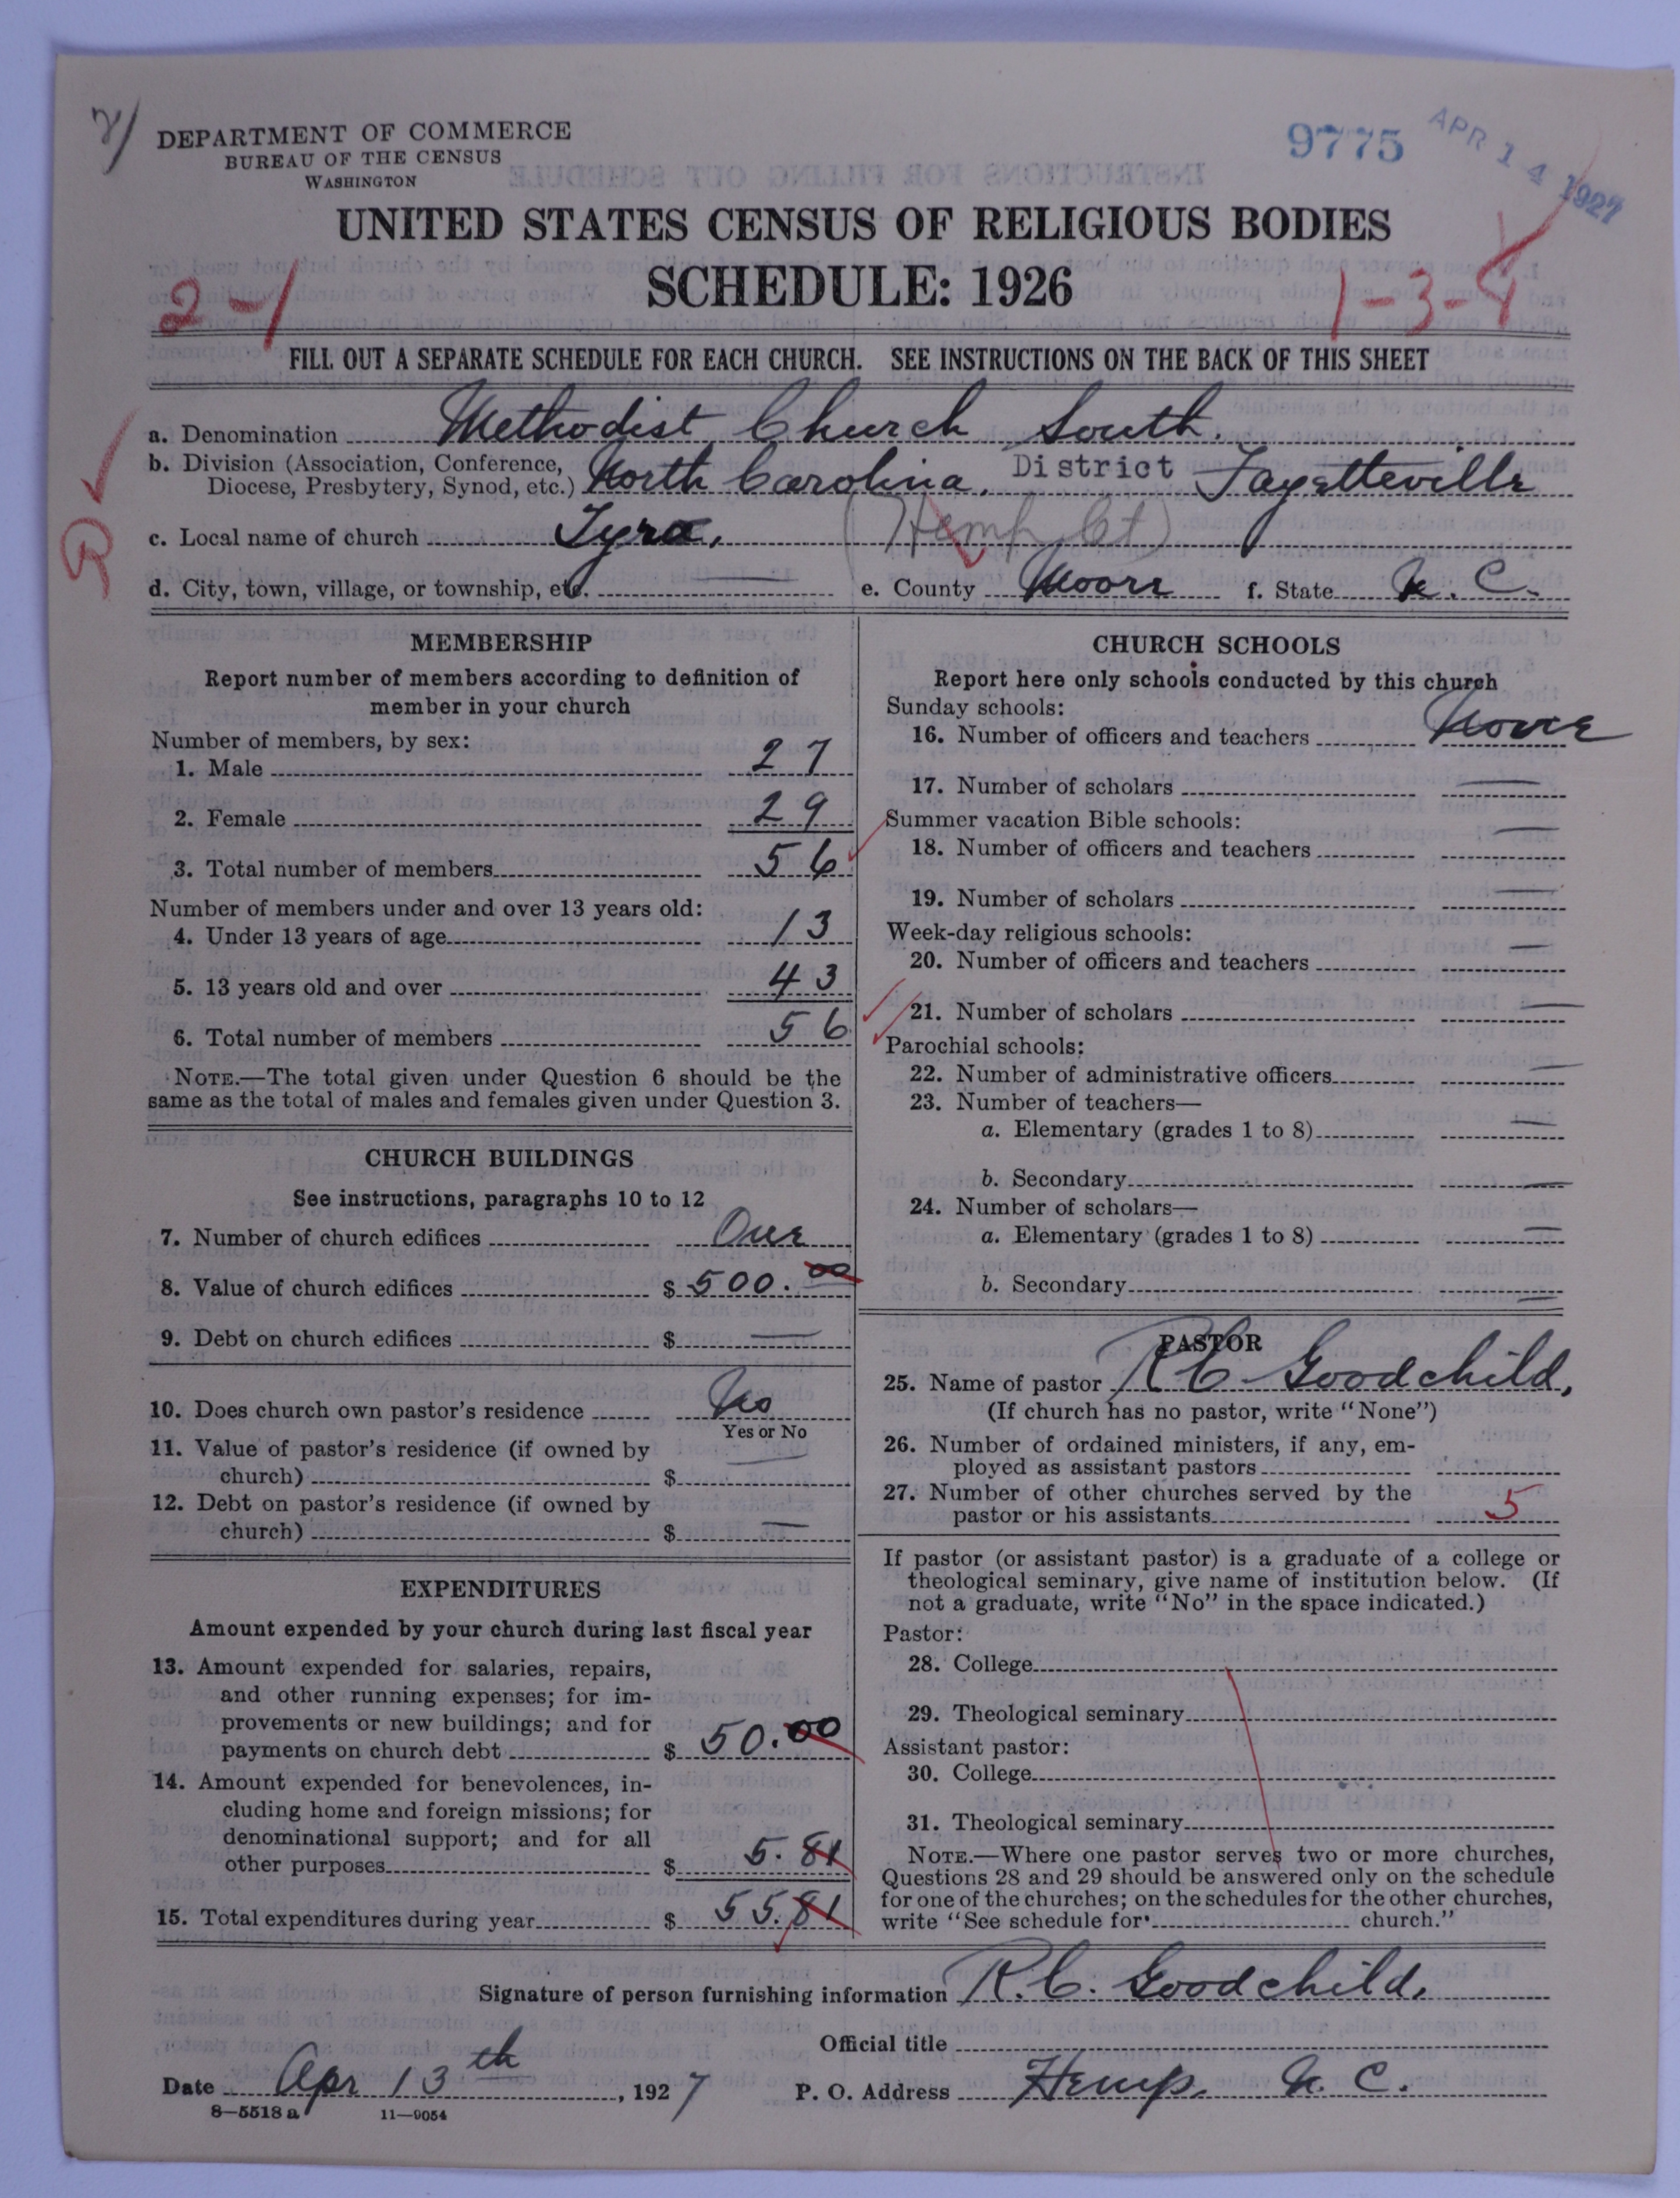 DEPARTMENT OF COMMERCE
BUREAU OF THE CENSUS
WASHINGTON
9775
APR 14 1927
UNITED STATES CENSUS OF RELIGIOUS BODIES
SCHEDULE: 1926
2-1
1-3-4
FILL OUT A SEPARATE SCHEDULE FOR EACH CHURCH. SEE INSTRUCTIONS ON THE BACK OF THIS SHEET
a. Denomination Methodist Church South.
b. Division (Association, Conference, Diocese, Presbytery, Synod, etc.) North Carolina, District Fayetteville
c. Local name of church Tyra, (Hemp Ct)
d. City, town, village, or township, etc. — e. County Moore f. State N. C.
MEMBERSHIP
Report number of members according to definition of
member in your church
Number of members, by sex:
1. Male 27
2. Female 29
3. Total number of members 56
Number of members under and over 13 years old:
4. Under 13 years of age 13
5. 13 years old and over 43
6. Total number of members 56
NOTE.—The total given under Question 6 should be the
same as the total of males and females given under Question 3.
CHURCH BUILDINGS
See instructions, paragraphs 10 to 12
7. Number of church edifices One
8. Value of church edifices $ 500.00
9. Debt on church edifices $ —
10. Does church own pastor's residence No
Yes or No
11. Value of pastor's residence (if owned by
church) $ —
12. Debt on pastor's residence (if owned by
church) $ —
EXPENDITURES
Amount expended by your church during last fiscal year
13. Amount expended for salaries, repairs,
and other running expenses; for im-
provements or new buildings; and for
payments on church debt $ 50.00
14. Amount expended for benevolences, in-
cluding home and foreign missions; for
denominational support; and for all
other purposes $ 5.81
15. Total expenditures during year $ 55.81
CHURCH SCHOOLS
Report here only schools conducted by this church
Sunday schools:
16. Number of officers and teachers None
17. Number of scholars —
Summer vacation Bible schools:
18. Number of officers and teachers —
19. Number of scholars —
Week-day religious schools:
20. Number of officers and teachers —
21. Number of scholars —
Parochial schools:
22. Number of administrative officers —
23. Number of teachers—
a. Elementary (grades 1 to 8) —
b. Secondary —
24. Number of scholars—
a. Elementary (grades 1 to 8) —
b. Secondary —
PASTOR
25. Name of pastor R C Goodchild,
(If church has no pastor, write "None")
26. Number of ordained ministers, if any, em-
ployed as assistant pastors
27. Number of other churches served by the
pastor or his assistants 5
If pastor (or assistant pastor) is a graduate of a college or
theological seminary, give name of institution below. (If
not a graduate, write "No" in the space indicated.)
Pastor:
28. College
29. Theological seminary
Assistant pastor:
30. College
31. Theological seminary
NOTE.—Where one pastor serves two or more churches,
Questions 28 and 29 should be answered only on the schedule
for one of the churches; on the schedules for the other churches,
write "See schedule for church."
Signature of person furnishing information R. C. Goodchild,
Official title
Date Apr 13th, 1927 P. O. Address Hemp, N. C.
8—5518 a 11—9054